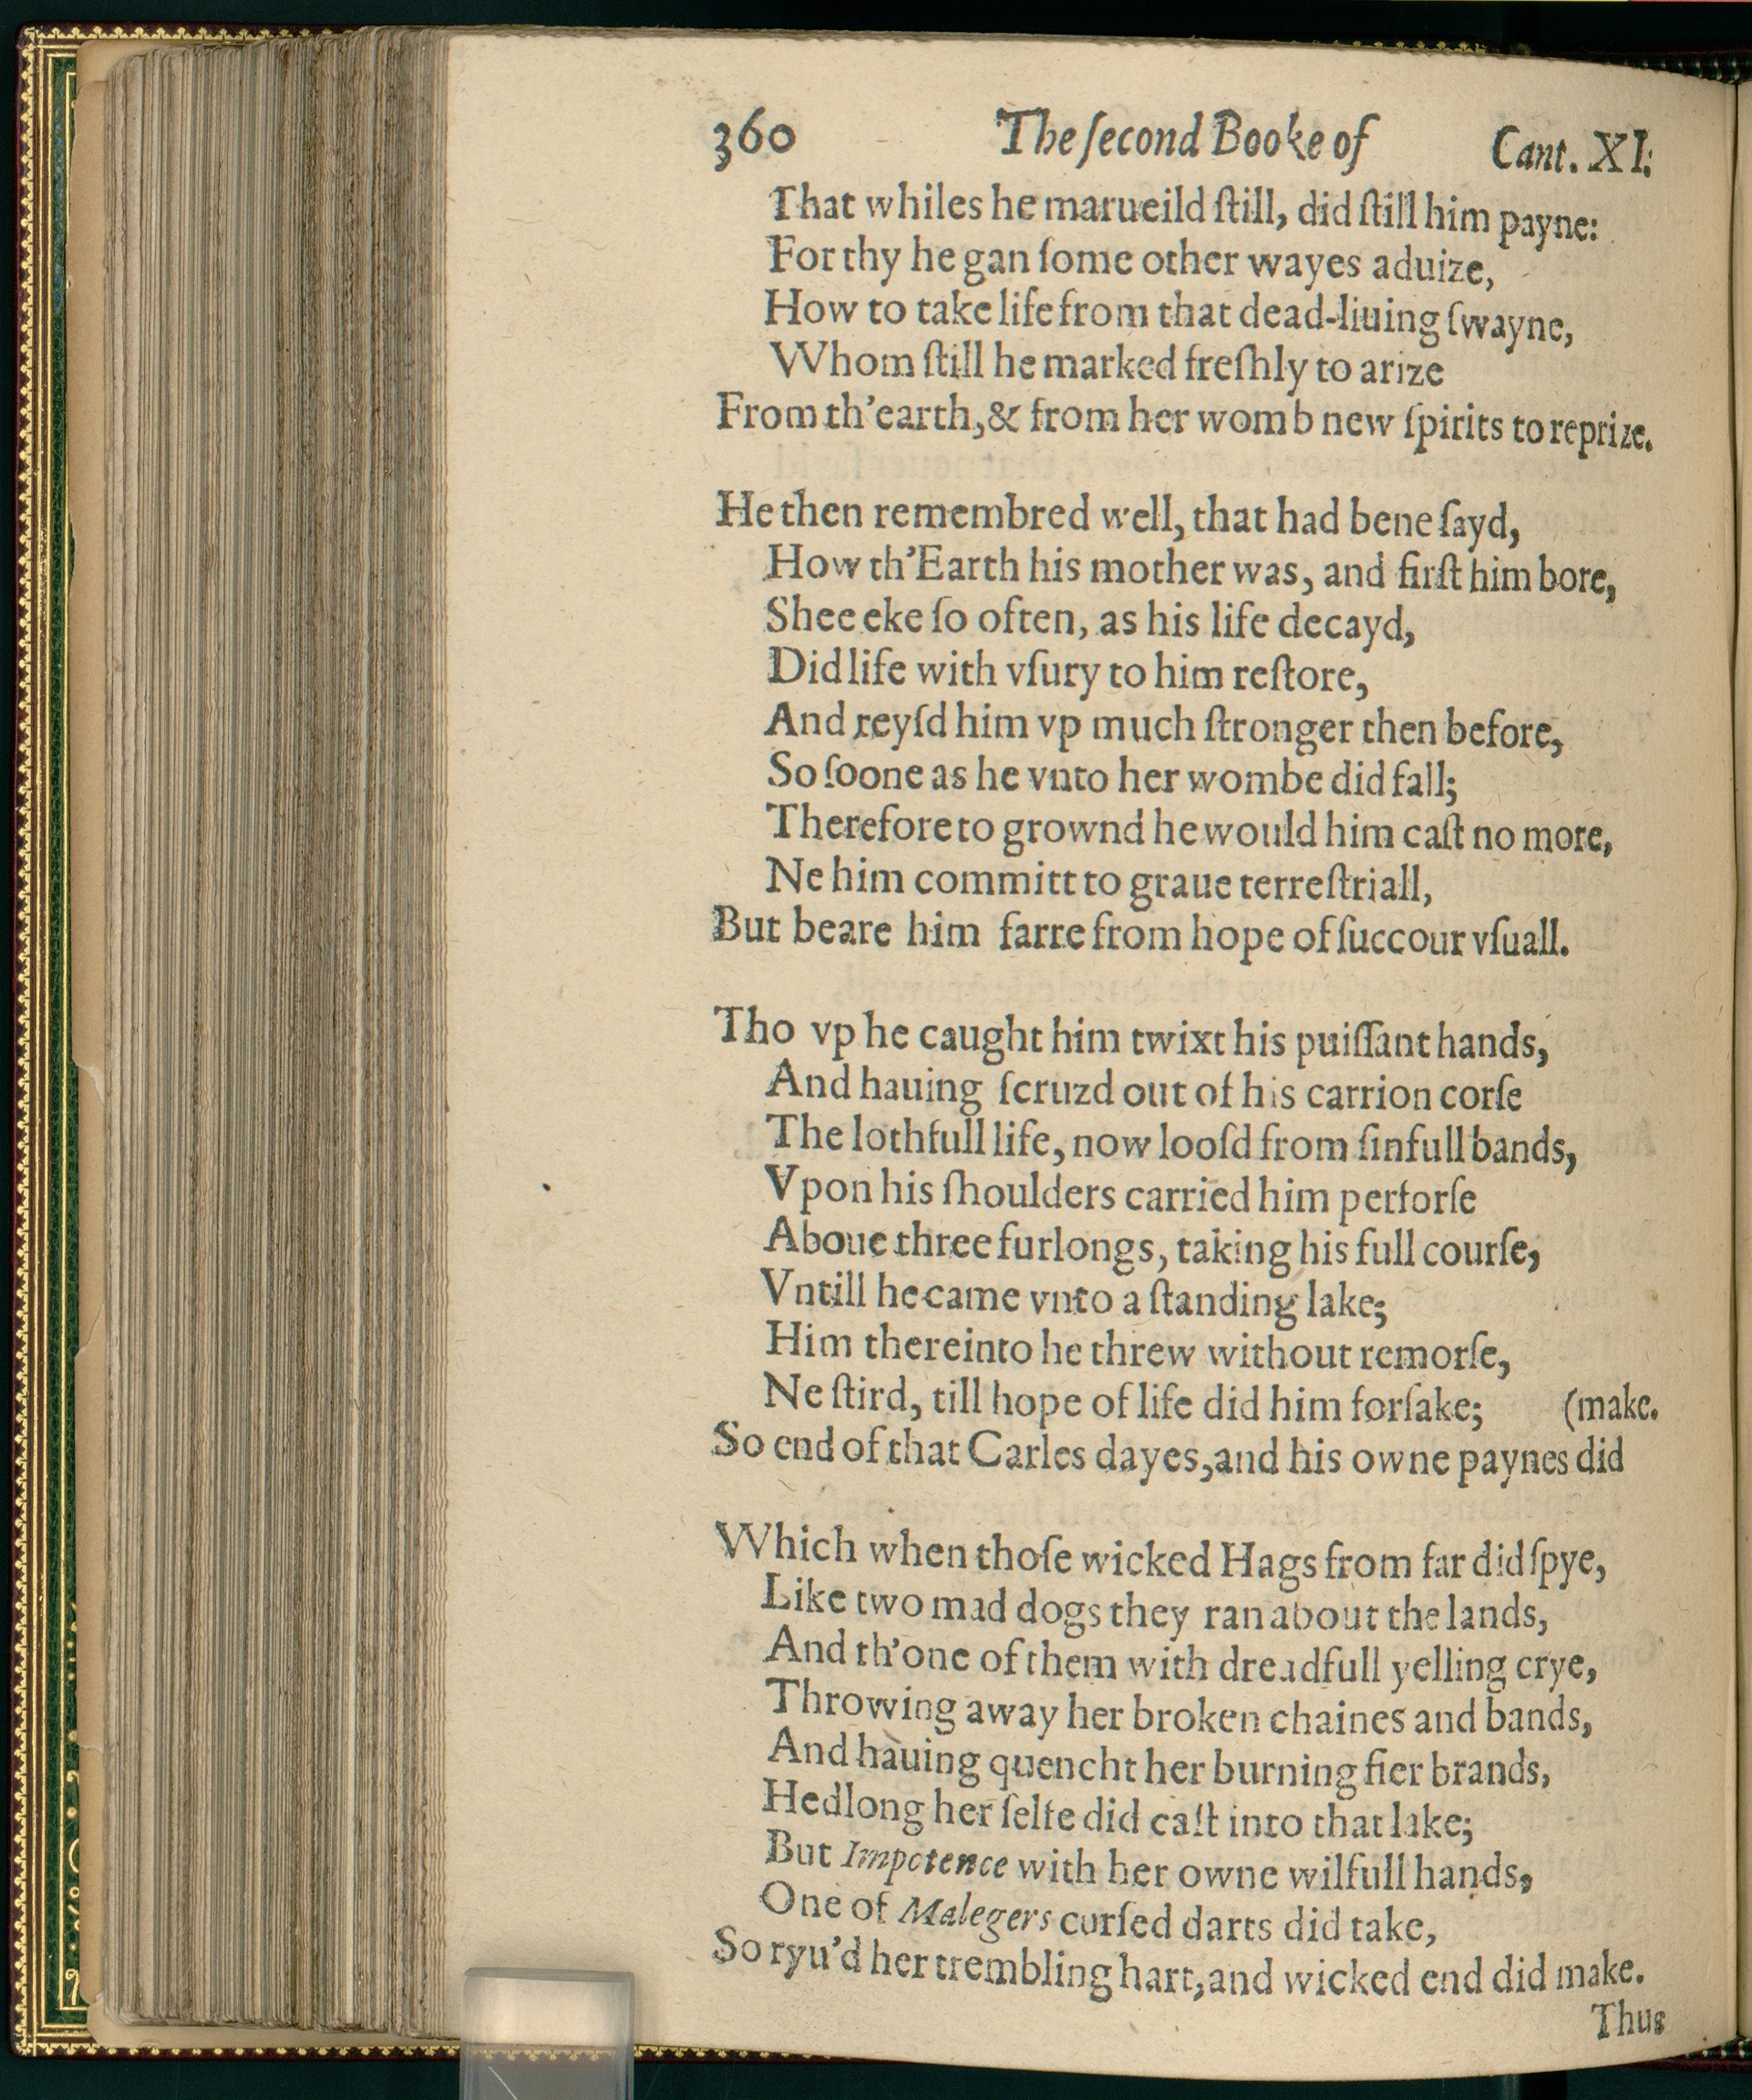 360 The ſecond Booke of Cant. XI.
That whiles he marueild ſtill, did ſtill him payne:
For thy he gan ſome other wayes aduize,
How to take life from that dead-liuing ſwayne,
Whom ſtill he marked freſhly to arize
From th'earth,& from her womb new ſpirits to reprize.
He then remembred well, that had bene ſayd,
How th'Earth his mother was, and firſt him bore,
Shee eke ſo often, as his life decayd,
Did life with vſury to him reſtore,
And reyſd him vp much ſtronger then before,
So ſoone as he vnto her wombe did fall;
Therefore to grownd he would him caſt no more,
Ne him committ to graue terreſtriall,
But beare him farre from hope of ſuccour vſuall.
Tho vp he caught him twixt his puiſſant hands,
And hauing ſcruzd out of his carrion corſe
The lothfull life, now looſd from ſinfull bands,
Vpon his ſhoulders carried him perforſe
Aboue three furlongs, taking his full courſe,
Vntill he came vnto a ſtanding lake;
Him thereinto he threw without remorſe,
Ne ſtird, till hope of life did him forſake; (make.
So end of that Carles dayes,and his owne paynes did
Which when thoſe wicked Hags from far did ſpye,
Like two mad dogs they ran about the lands,
And th'one of them with dreadfull yelling crye,
Throwing away her broken chaines and bands,
And hauing quencht her burning fier brands,
Hedlong her ſelfe did caſt into that lake;
But Impotence with her owne wilfull hands,
One of Malegers curſed darts did take,
So ryu'd her trembling hart,and wicked end did make.
Thus